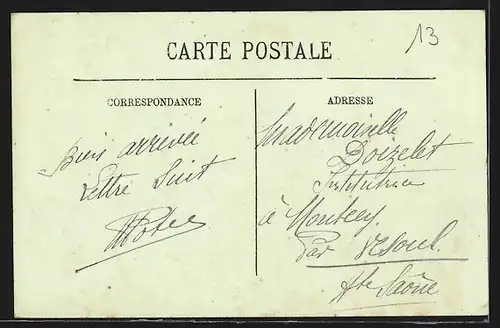 13
CARTE POSTALE
CORRESPONDANCE
Bien arrivée
Lettre suit
ADRESSE
Mademoiselle
Doizelet
Institutrice
à
Par Vesoul
Hte Saône